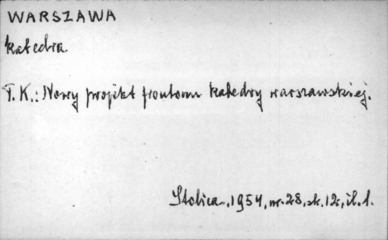 WARSZAWA
katedra
T. K.: Nowy projekt frontonu katedry warszawskiej.
Stolica, 1954, nr. 28, sk. 12, il. 1.